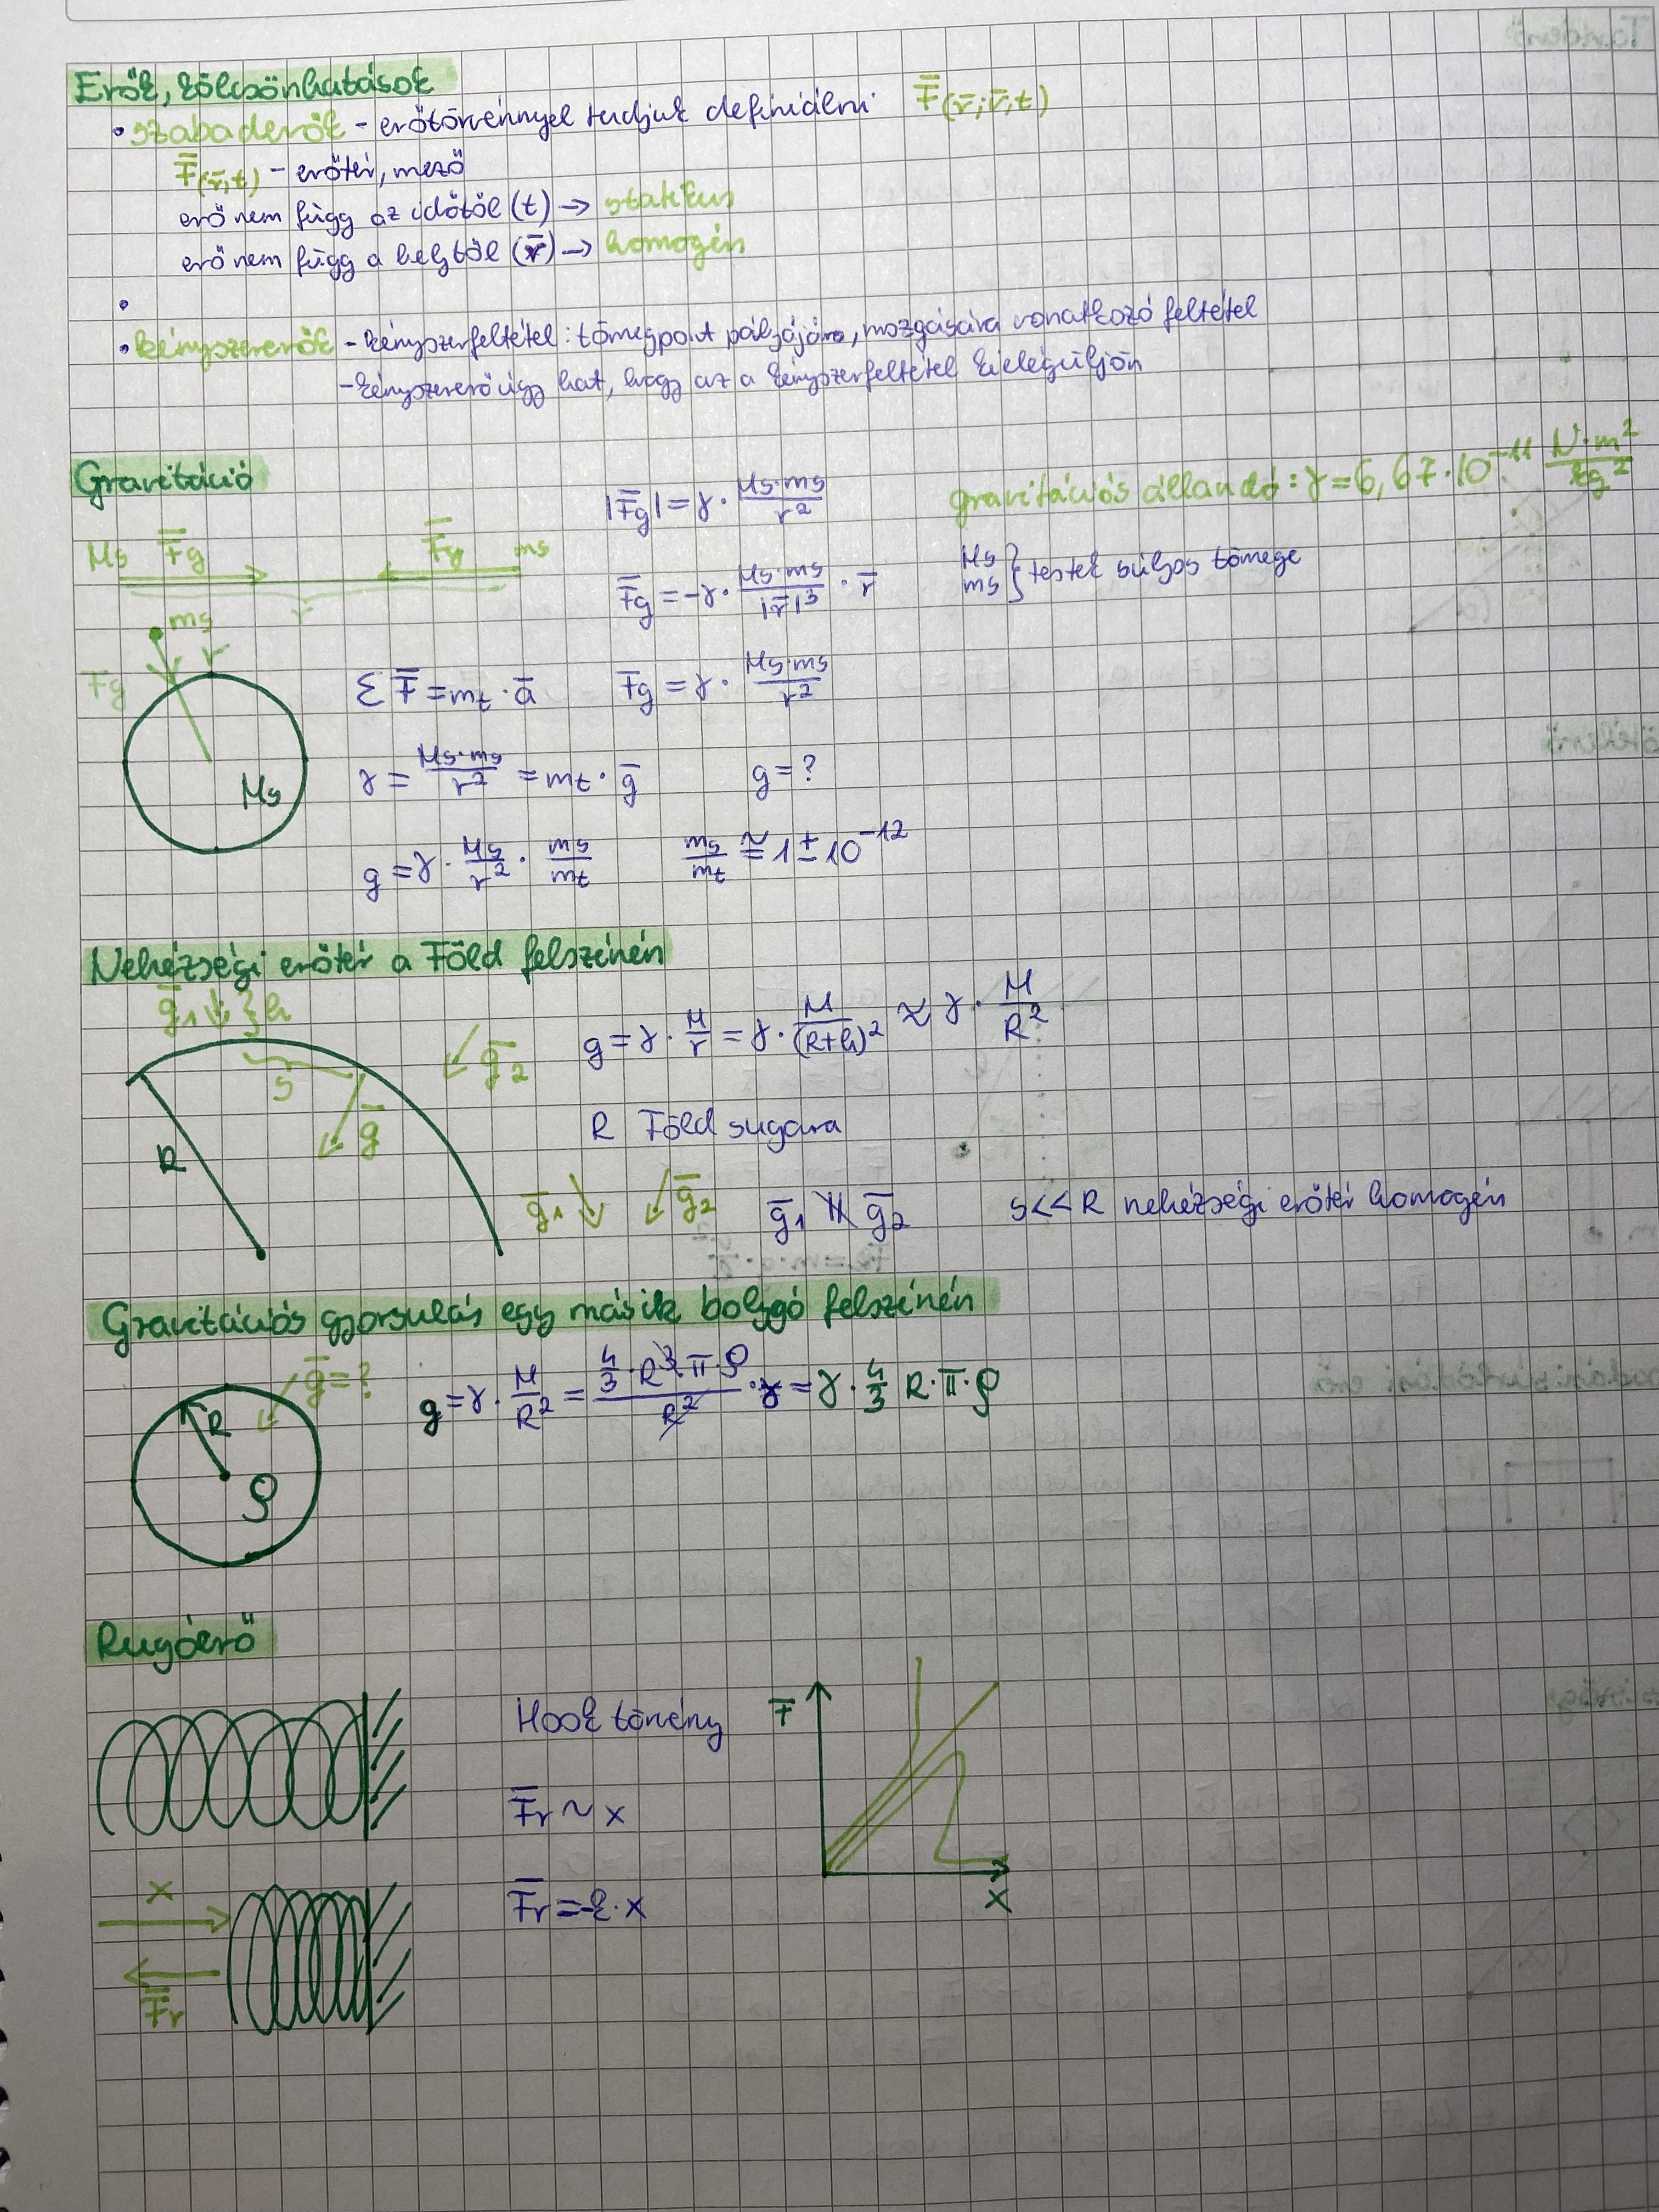 Erők, kölcsönhatások
• szabaderők - erőtörvénnyel tudjuk definiálni F̄(r̄; r̄, t)
F̄(r̄, t) - erőtér, mező
erő nem függ az időtől (t) → statikus
erő nem függ a helytől (r̄) → homogén
•
• kényszererők - kényszerfeltétel: tömegpont pályájára, mozgására vonatkozó feltétel
- kényszererő úgy hat, hogy az a kényszerfeltétel kielégüljön
Gravitáció
|F̄g| = γ · Ms·ms / r²
gravitációs állandó: γ = 6,67·10⁻¹¹ N·m² / kg²
Ms F̄g F̄g ms
r
F̄g = -γ · Ms·ms / |r̄|³ · r̄
Ms
ms } testek súlyos tömege
ms
Fg
Ms
Σ F̄ = mt · ā
Fg = γ · Ms·ms / r²
γ = Ms·ms / r² = mt · ḡ
g = ?
g = γ · Ms / r² · ms / mt
ms / mt ≅ 1 ± 10⁻¹²
Nehézségi erőtér a Föld felszínén
ḡ1 } h
s
ḡ2
ḡ
R
g = γ · M / r = γ · M / (R+h)² ≈ γ · M / R²
R Föld sugara
ḡ1 ḡ2
ḡ1 ∦ ḡ2
s << R nehézségi erőtér homogén
Gravitációs gyorsulás egy másik bolygó felszínén
ḡ = ?
R
ρ
g = γ · M / R² = 4/3 · R³ π · ρ / R² · γ = γ · 4/3 R · π · ρ
Rugóerő
Hook törvény
F̄
X
F̄r ~ x
x
F̄r
F̄r = -k · x